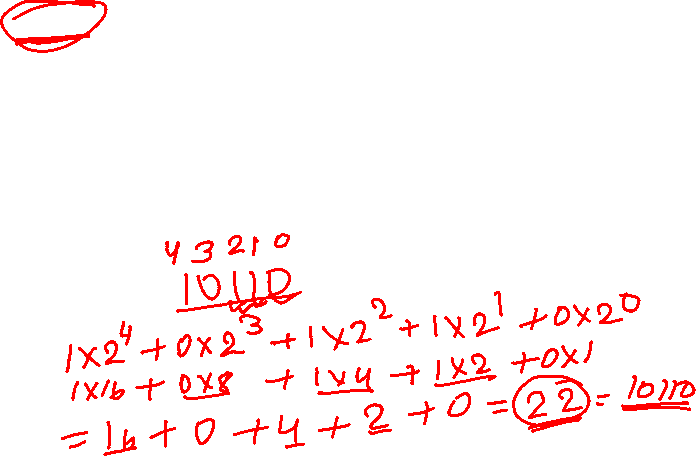 4 3 2 1 0
10110
1×2⁴+0×2³+1×2²+1×2¹+0×2⁰
1×16+0×8+1×4+1×2+0×1
=16+0+4+2+0=22=10110